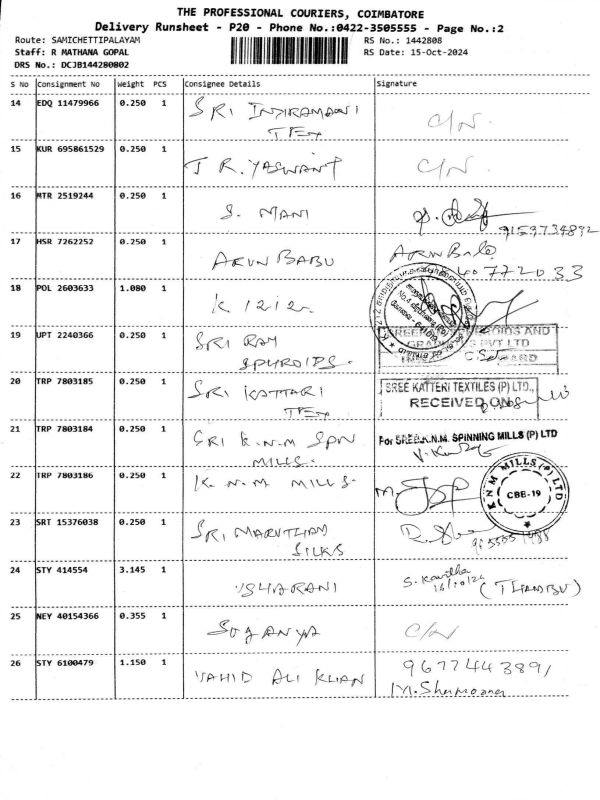 THE PROFESSIONAL COURIERS, COIMBATORE
Delivery Runsheet - P20 - Phone No.:0422-3505555 - Page No.:2
Route: SAMICHETTIPALAYAM
RS No.: 1442808
Staff: R MATHANA GOPAL
RS Date: 15-Oct-2024
DRS No.: DCJB144280802
S No Consignment No Weight PCS Consignee Details Signature
14 EDQ 11479966 0.250 1 SRI INDIRAMANI
TEX
C/N.
15 KUR 695861529 0.250 1 T R. YASWANT C/N.
16 MTR 2519244 0.250 1 S. MANI
9159734892
17 HSR 7262252 0.250 1 ARUN BABU ARUN Babu
4077 2033
18 POL 2603633 1.080 1 K 1212.
19 UPT 2240366 0.250 1 SRI RAM
SPHROIDS.
AND
PVT LTD
20 TRP 7803185 0.250 1 SRI KATTARI
TEX
SREE KATTERI TEXTILES (P) LTD.,
RECEIVED ON
21 TRP 7803184 0.250 1 SRI K.N.M SPN
MILLS.
For SREE K.N.M. SPINNING MILLS (P) LTD
22 TRP 7803186 0.250 1 K. N. M MILLS.
KNM MILLS (P) LTD
CBE-19
23 SRT 15376038 0.250 1 SRI MARUTHAM
SILKS
24 STY 414554 3.145 1 USHARANI
S. Kavitha
16/10/24
(THAMBU)
25 NEY 40154366 0.355 1 SUGANYA C/N
26 STY 6100479 1.150 1 VAHID ALI KHAN
9677443891